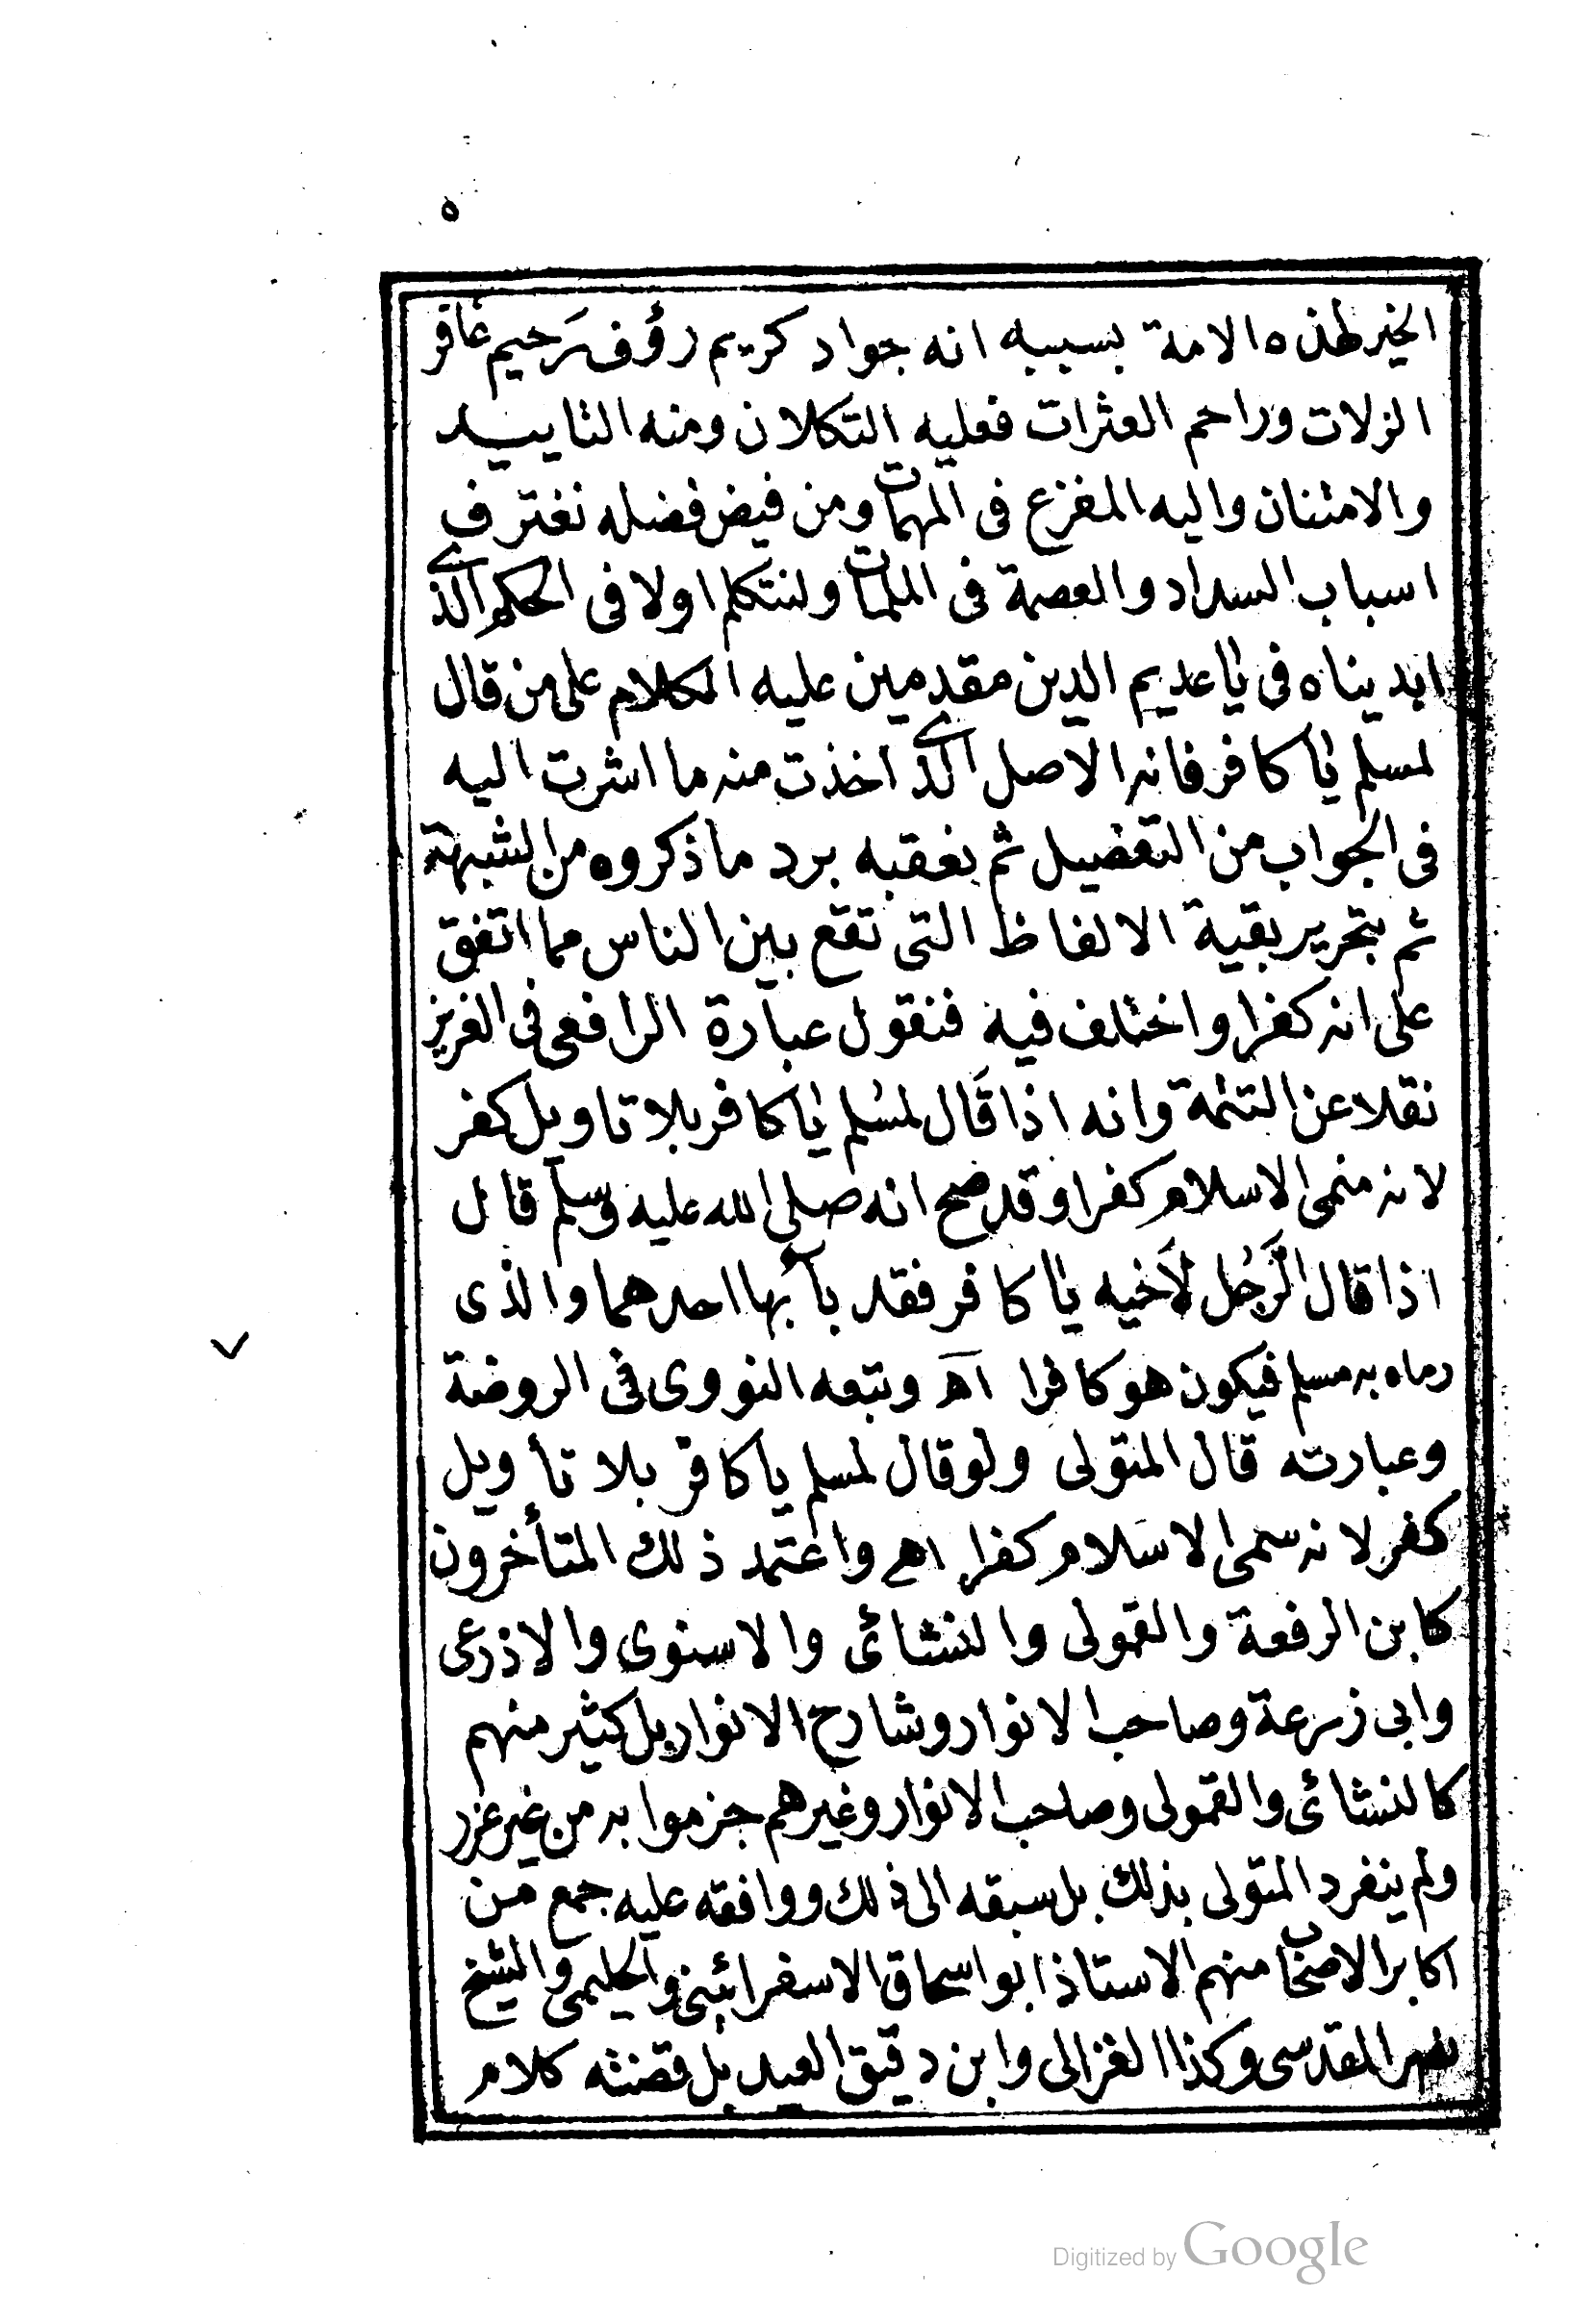 ٥
الخير لهذه الامة بسببه انه جواد كريم رؤف رَحيم غافر
الزلات وراحم العثرات فعليه التكلان ومنه التاييد
والامتنان واليه المفزع فى المهمات ومن فيض فضله نغترف
اسباب السداد والعصمة فى الملمات ولنتكلم اولا فى الحكم الذى
ابديناه فى يا عديم الدين مقدمين عليه الكلام على من قال
لمسلم يا كافر فانه الاصل الذى اخذت منه ما اشرت اليه
فى الجواب من التفصيل ثم نعقبه برد ما ذكروه من الشبهة
ثم بتحرير بقية الالفاظ التى تقع بين الناس مما اتفق
على انه كفر او اختلف فيه فنقول عبارة الرافعى فى العزيز
نقلا عن التتمة وانه اذا قَال لمسُلم يا كافر بلا تاويل كفر
لانه سمى الاسلام كفرا وقد صح انه صلى الله عليه وسلم قال
اذا قال الرَّجُل لأَخيه يا كافر فقد بآء بها احدهما والذى
رماه به مسلم فيكون هو كافرا اھ وتبعه النووى فى الروضة
وعبارته قال المتولى ولو قال لمسلم يا كافر بلا تأويل
كفر لانه سمى الاسلام كفرا اهـ واعتمد ذلك المتأخرون
كابن الرفعة والقمولى والنشائى والاسنوى والاذرعى
وابى زرعة وصاحب الانوار وشارح الانوار بل كثير منهم
كالنشائى والقمولى وصاحب الانوار وغيرهم جزموا به من غير عزو
ولم ينفرد المتولى بذلك بل سبقه الى ذلك ووافقه عليه جمع من
اكابر الاصحاب منهم الاستاذ ابو اسحاق الاسفرائينى والحليمى والشيخ
نصر المقدسى وكذا الغزالى وابن دقيق العيد بل قضيته كلام
Digitized by Google